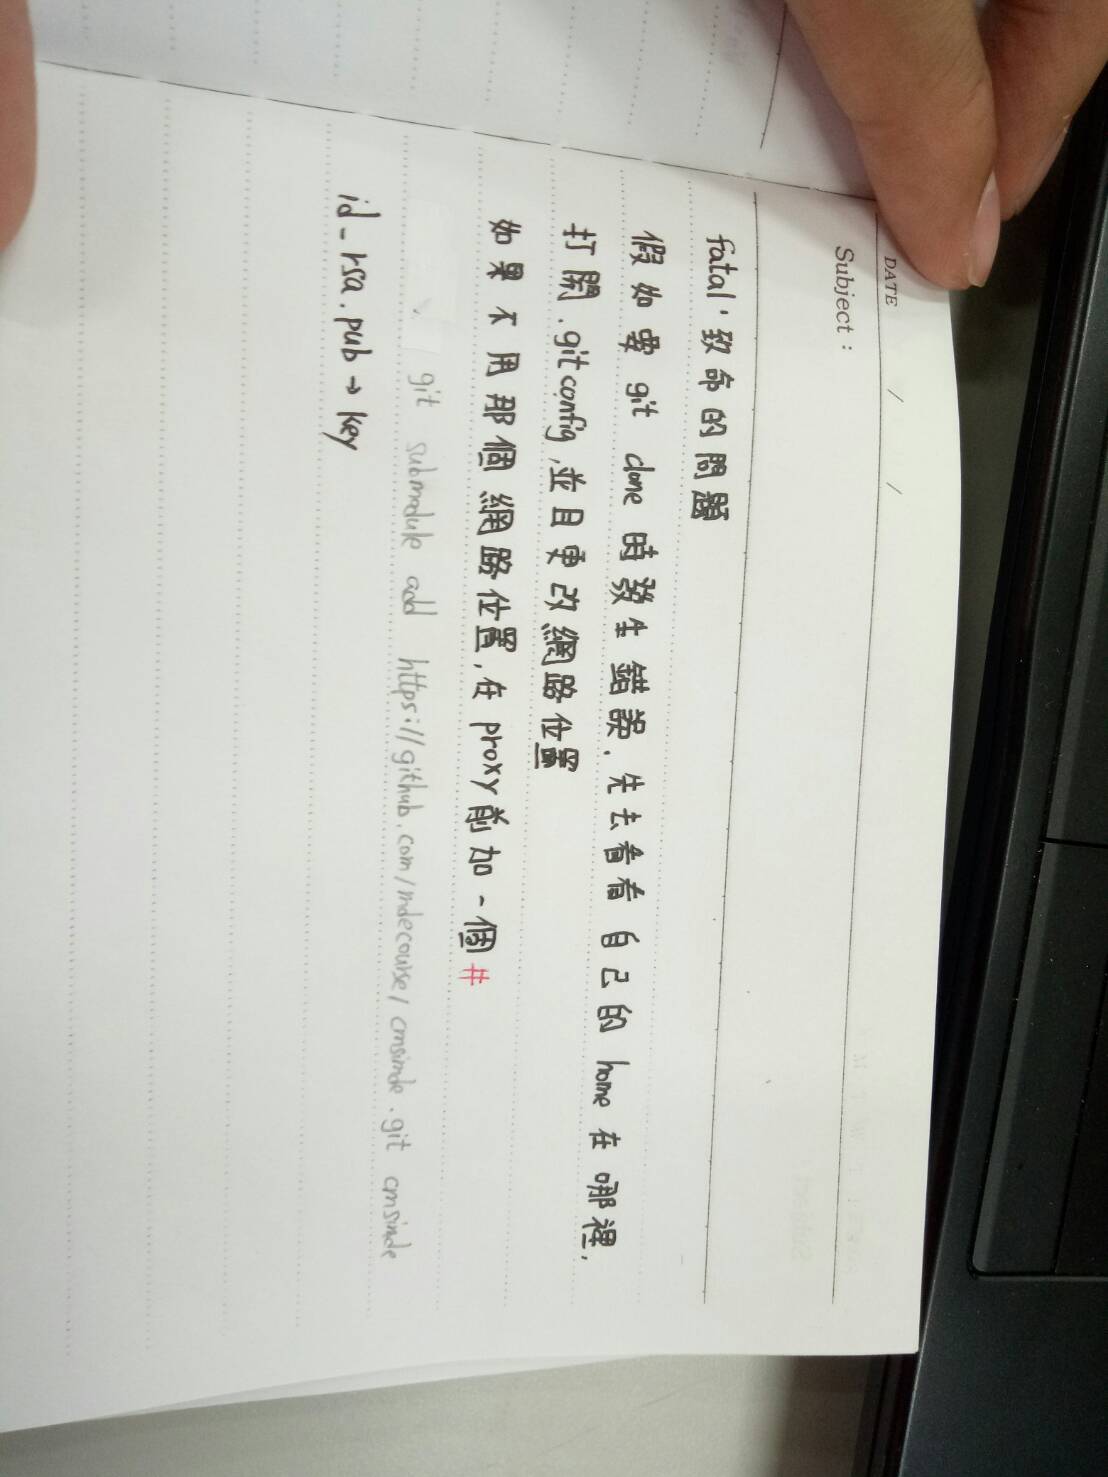 DATE / /
Subject :
fatal · 致命的問題
假如要 git clone 時發生錯誤, 先去看看自己的 home 在哪裡,
打開 .gitconfig , 並且更改網路位置
如果不用那個網路位置, 在 proxy 前加一個 #
git submodule add https://github.com/mdecourse/cmsimde.git cmsimde
id_rsa.pub → key